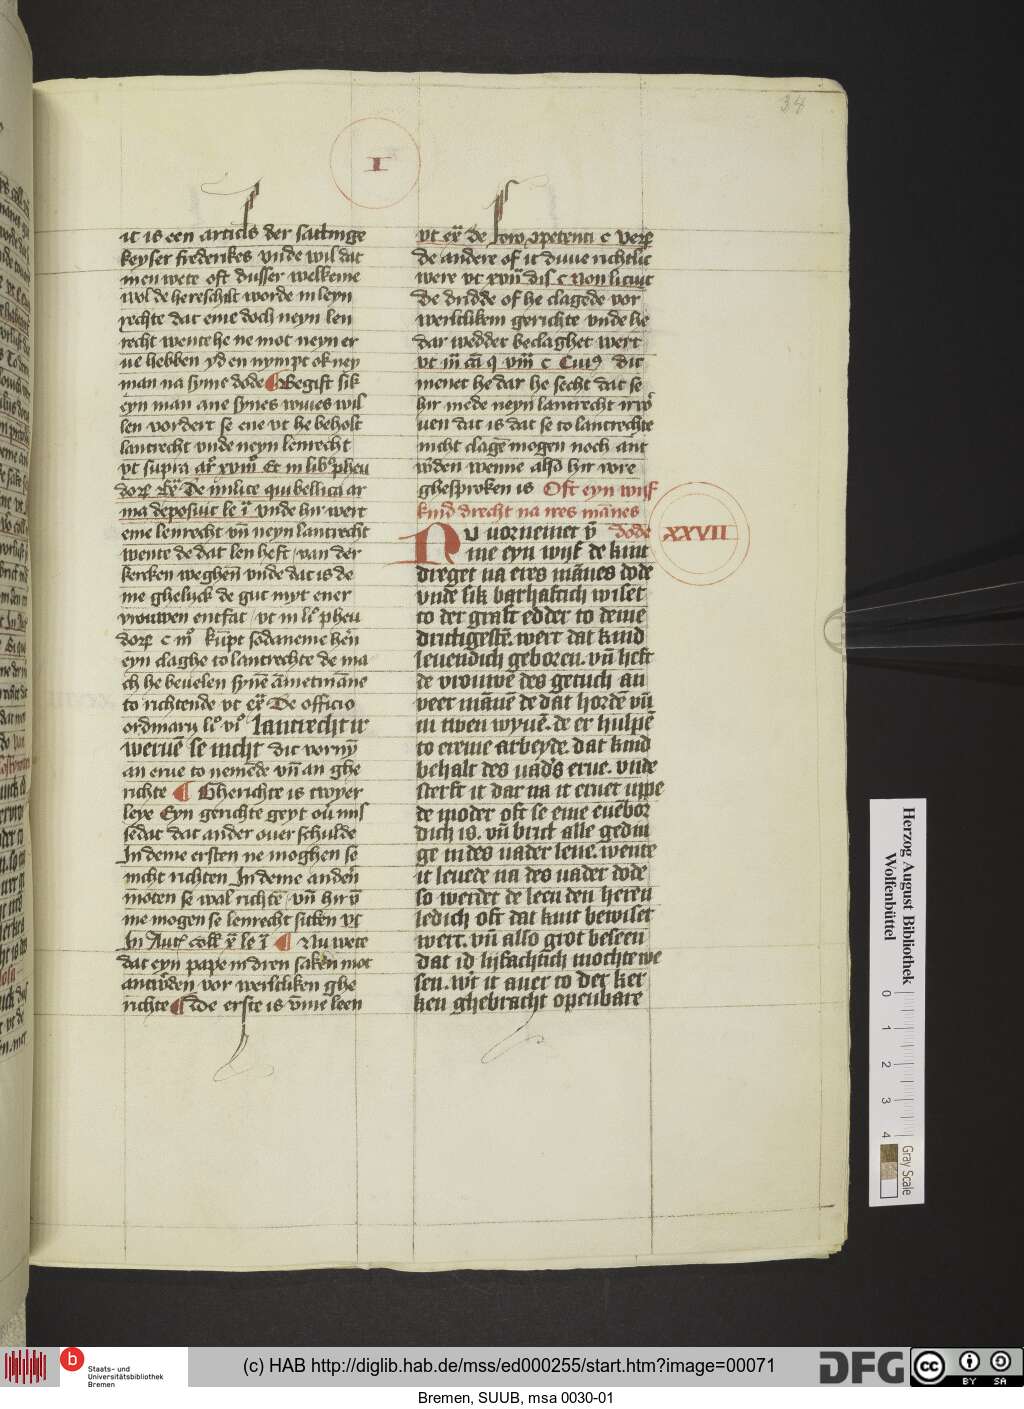 34
I
it is een articls der sattinge
keyser frederikes vnde wil dat
men wete oft dusser welkeme
wol de hereschilt worde in leyn
rechte dat eme doch neyn len
recht wente he ne mot neyn er
ue hebben yd en nympt ok ney
man na syme dode Begift sik
eyn man ane synes wiues wil
len vordert se ene vt he beholt
lantrecht vnde neyn lenrecht
vt supra ar° xviii° Et in lib° pheu
dorꝫ De milite qui bellica ar
ma deposuit le i vnde hir wert
eme lenrecht vn̄ neyn lantrecht
wente de dat len heft van der
kercken weghen̄ vnde dat is de
me ghelyck de gut myt ener
vrouwen entfat vt in li° pheu
dorꝫ c iii° kūpt sodaneme hēn
eyn claghe to lantrechte de ma
ch he beuelen synē āmetmāne
to richtende vt ex̄ De officio
ordinarij li° vi° lantrecht ir
weruē se nicht dit vorny
an erue to nemēde vn̄ an ghe
richte Gherichte is twyer
leye Eyn gerichte geyt ou mis
sedat dat ander ouer schulde
In deme ersten ne moghen se
nicht richten In deme anden
moten se wal richtē vn̄ hir
me mogen se lenrecht sitken vt
In Aut coll x le i Nu wete
dat eyn pape in dren saken mot
antw̄den vor werltliken ghe
richte De erste is vme leen
vt ex̄ de foro ꝯpetenti c verꝫ
de andere of it duue richtlic
were vt xviii dis c Non licuit
De dridde of he clagede vor
werltlikem gerichte vnde he
dar wedder beclaghet wert
vt iii ca q viii c Cui⁹ dit
menet he dar he secht dat se
hir mede neyn lantrecht irw
uen dat is dat se to lantrechte
nicht clagē mogen noch ant
w̄den wenne also hir vore
ghesproken is Oft eyn wijf
kind drecht na ires mānes
dode XXVII
Nu vornemet v
me eyn wijf de kint
dreget na eres mānes dode
vnde sik barhaftich wiset
to der graft edder to deme
druttigestē. wert dat kind
leuendich geboren. vn̄ heft
de vrouwe des getuch an
veer māuē de dat hordē vn̄
in twen wyuē. de er hulpē
to ereme arbeyde. dat kind
behalt des vad's erue. vnde
sterft it dar na it eruet uppe
de moder oft se eme euēbor
dich is. vn̄ brict alle gedin
ge in des vader leue. wente
it leuede na des vader dode
so werdet de leen den heren
ledich oft dat kint bewiset
wert. vn̄ also grot beseen
dat id lijfachtich mochte we
sen. wt it auer to der ker
ken ghebracht openbare
Herzog August Bibliothek
Wolfenbüttel
0
1
2
3
4
Gray Scale
b
Staats- und
Universitätsbibliothek
Bremen
(c) HAB http://diglib.hab.de/mss/ed000255/start.htm?image=00071
DFG
cc
BY SA
Bremen, SUUB, msa 0030-01